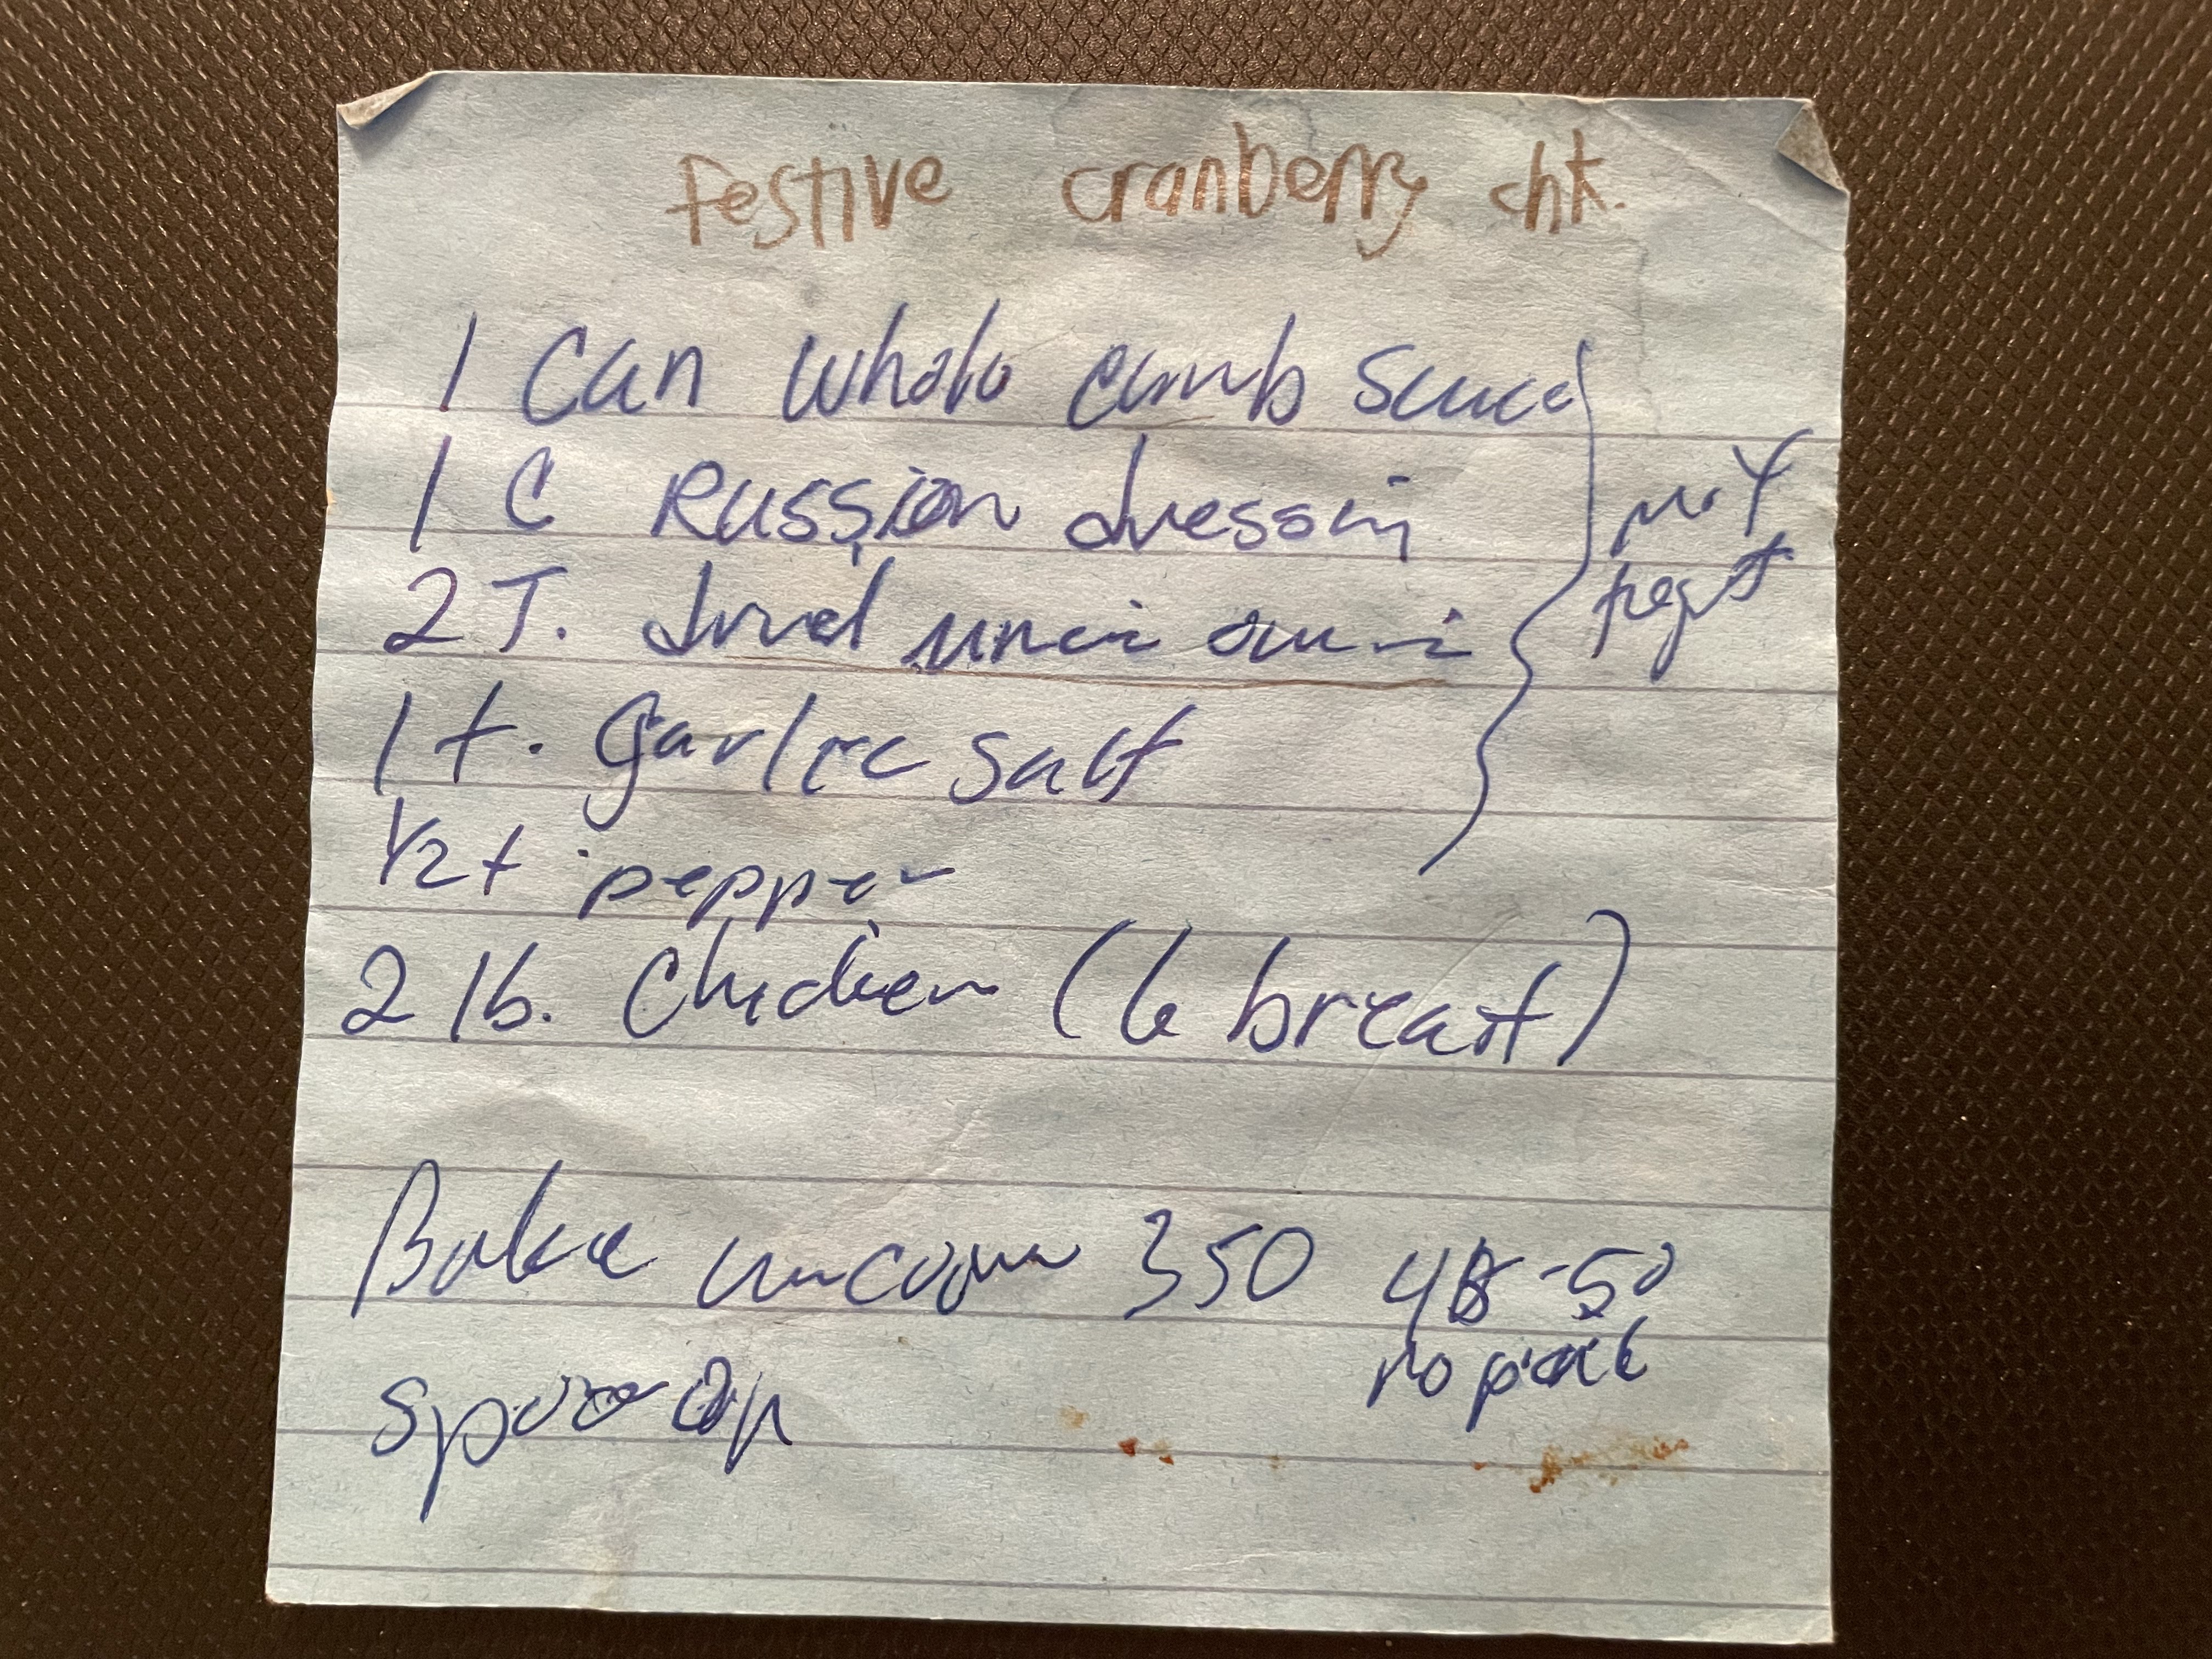 Festive cranberry chk.
1 Can whole cranb sauce
1 C Russian dressin
mix
2 T. dried mince onion
1 t. garlic salt
1/2 t pepper
2 lb. Chicken (6 breast)
Bake uncover 350 45-50
no pink
spoon